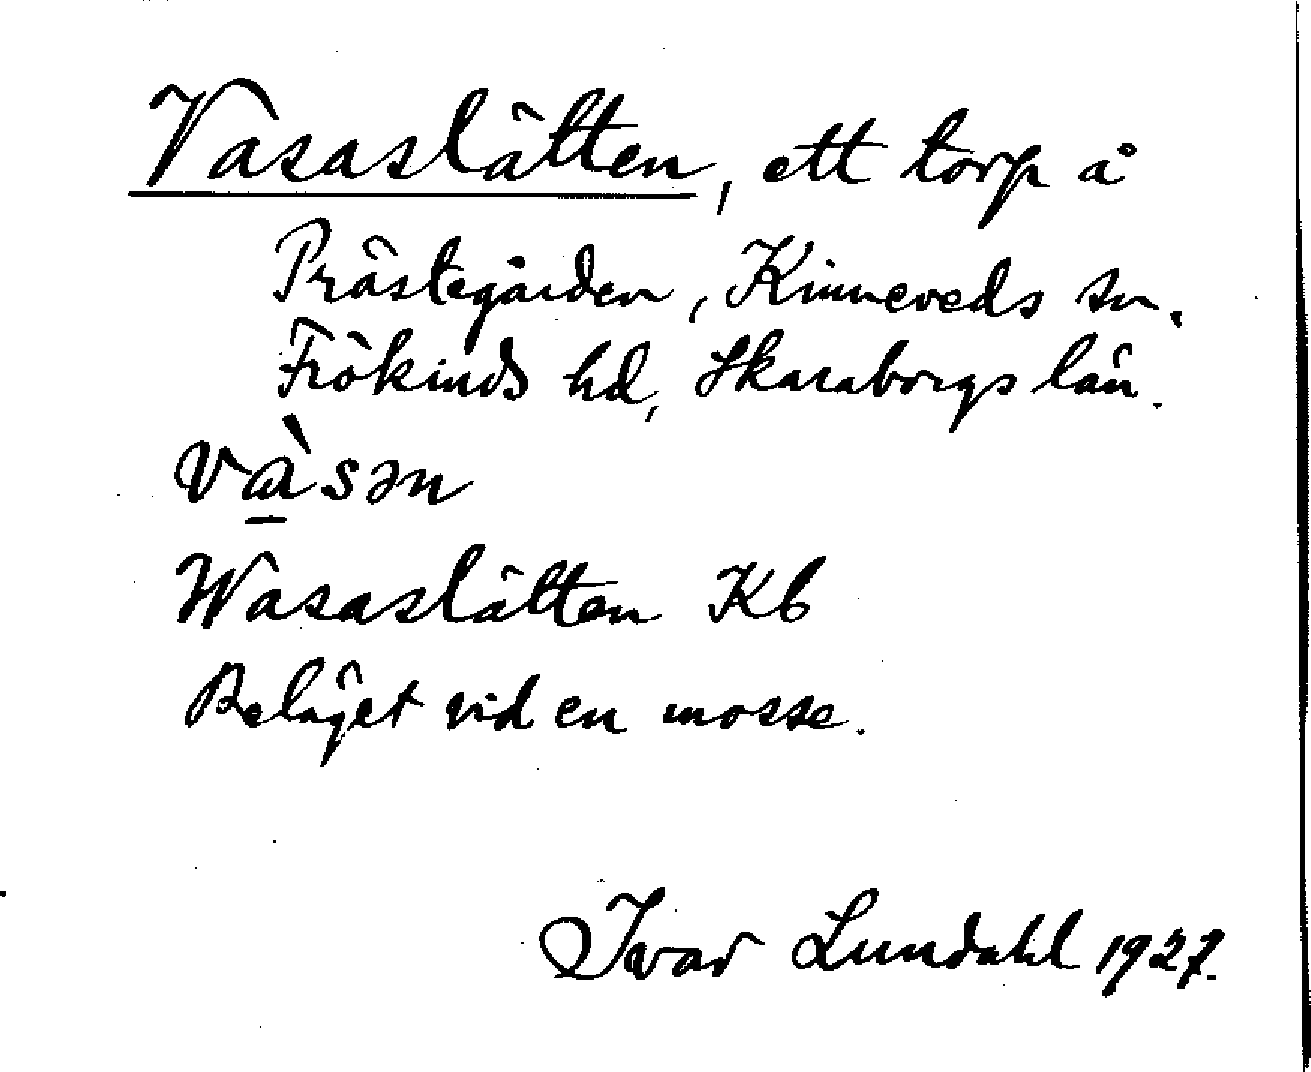 Vasaslätten, ett torp å
Prästegården, Kinneveds sn.
Frökinds hd, Skaraborgs län.
vɑ̠̀sən
Wasaslätten Kb
Beläget vid en mosse.
Ivar Lundahl 1927.